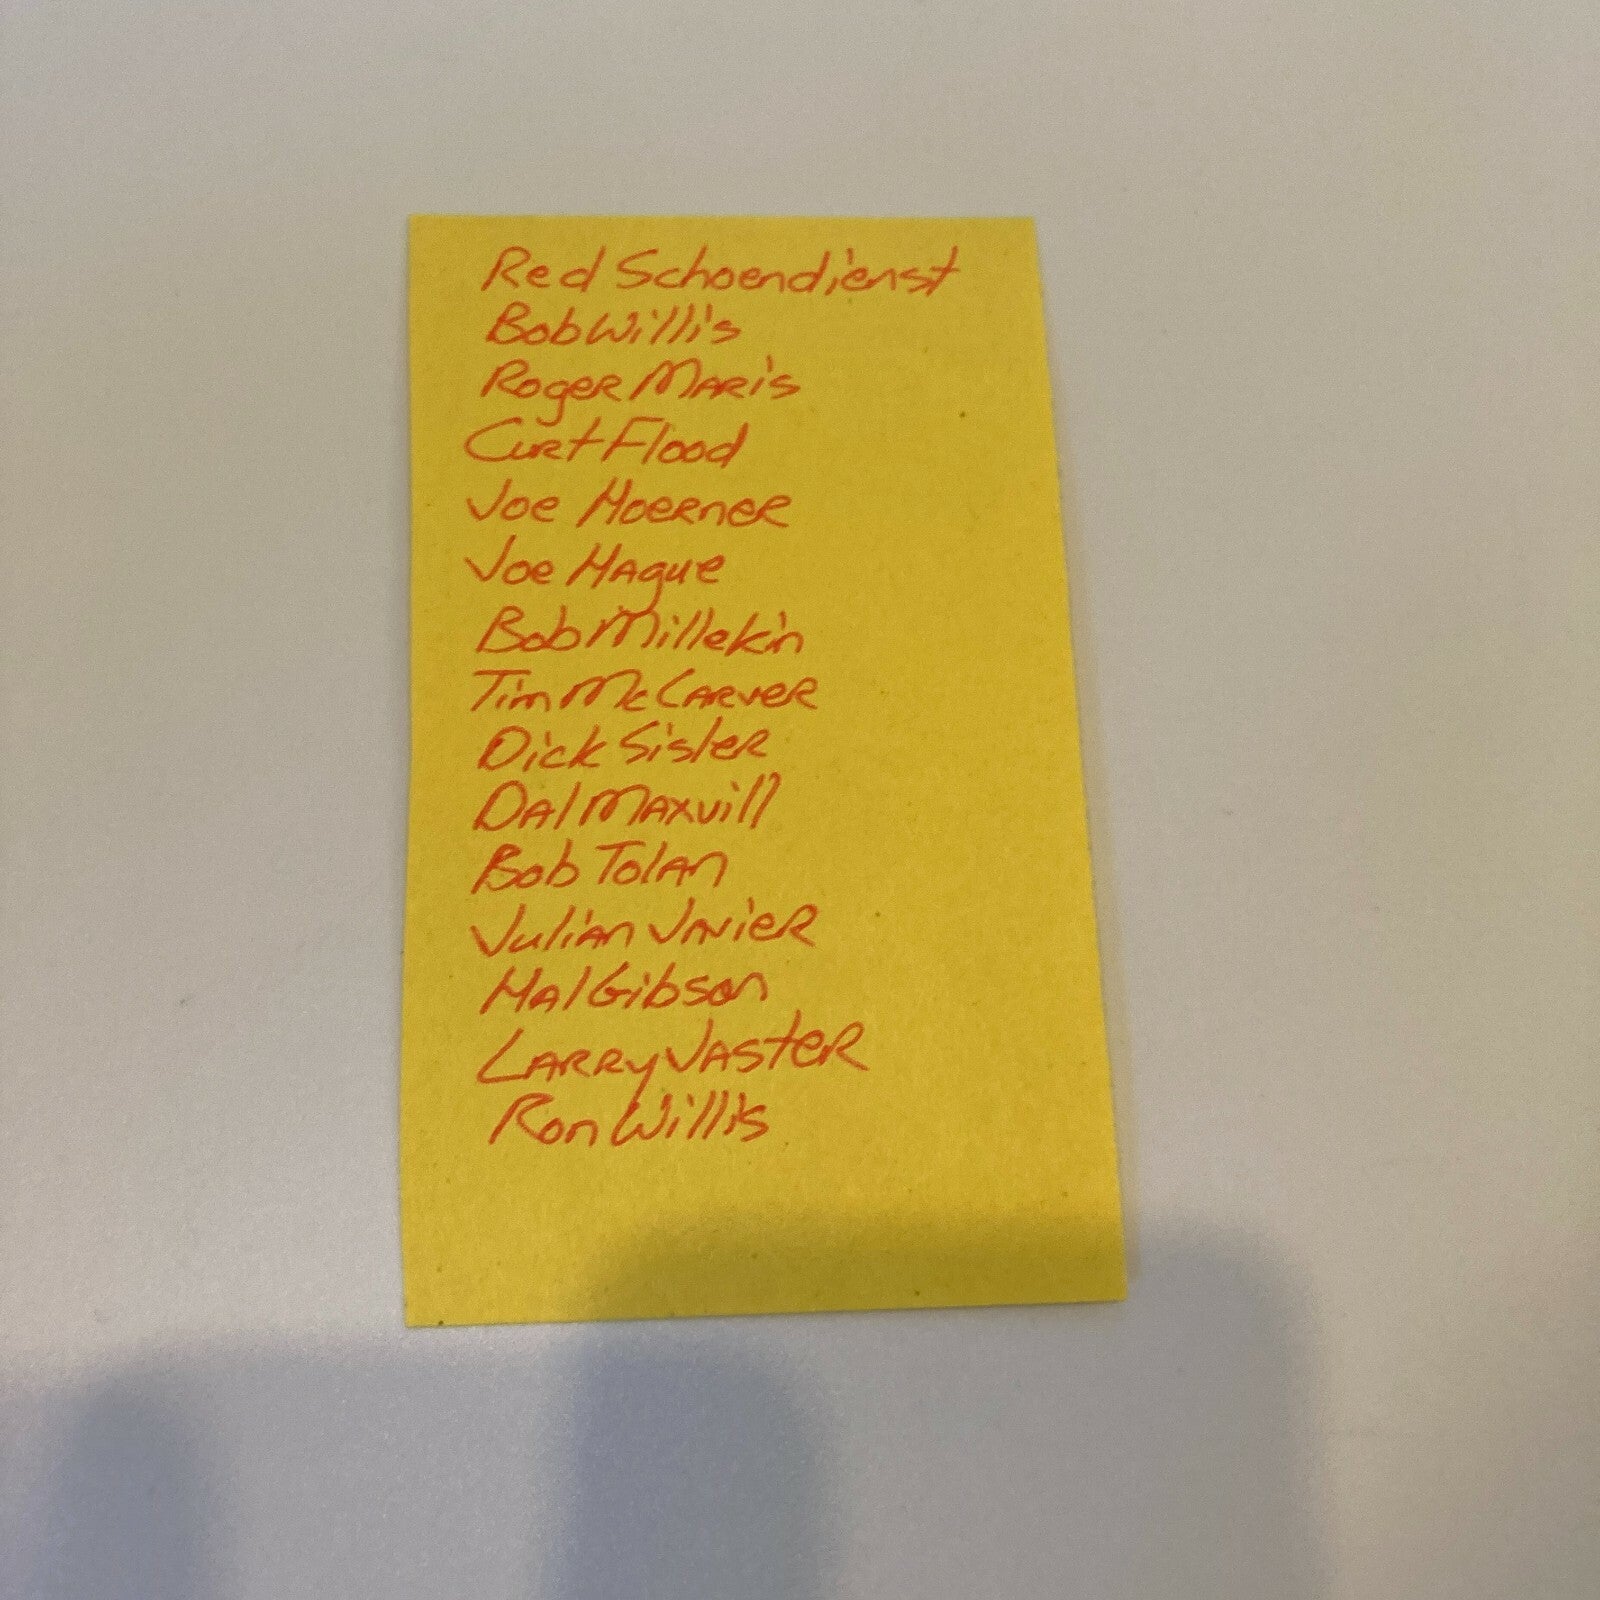 Red Schoendienst
Bob Willis
Roger Maris
Curt Flood
Joe Hoerner
Joe Hague
Bob Millek'n
Tim McCarver
Dick Sisler
Dal Maxvill
Bob Tolan
Julian Javier
Hal Gibson
Larry Jaster
Ron Willis